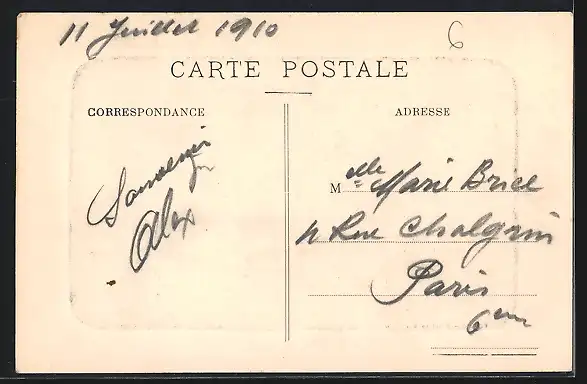 11 Juillet 1910
6
CARTE POSTALE
CORRESPONDANCE
ADRESSE
Souvenir
Alex
Melle Marie Brice
4 Rue Chalgrin
Paris
6em